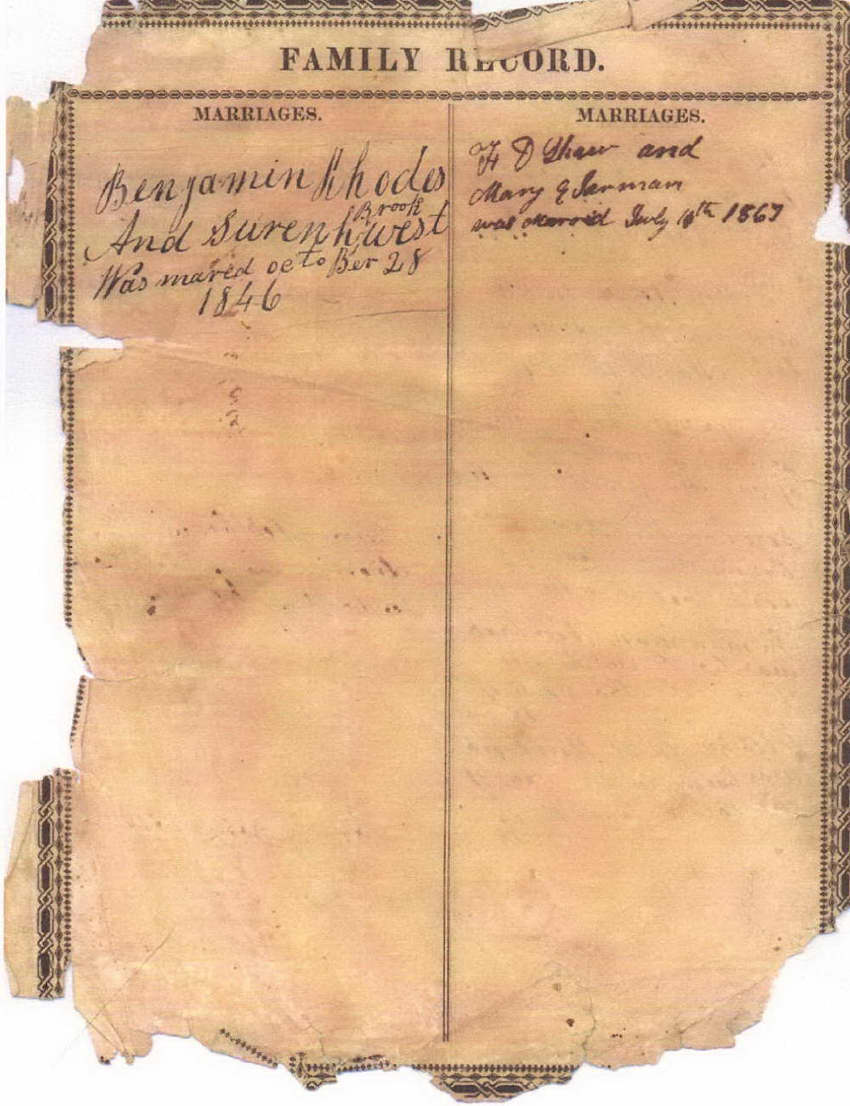 FAMILY RECORD.
MARRIAGES.
Benjamin Rhodes
Brook
And Surenhwest
Was mared octo Ber 28
1846
MARRIAGES.
F D Shaw and
Mary E Jarman
was Married July 18th 1867